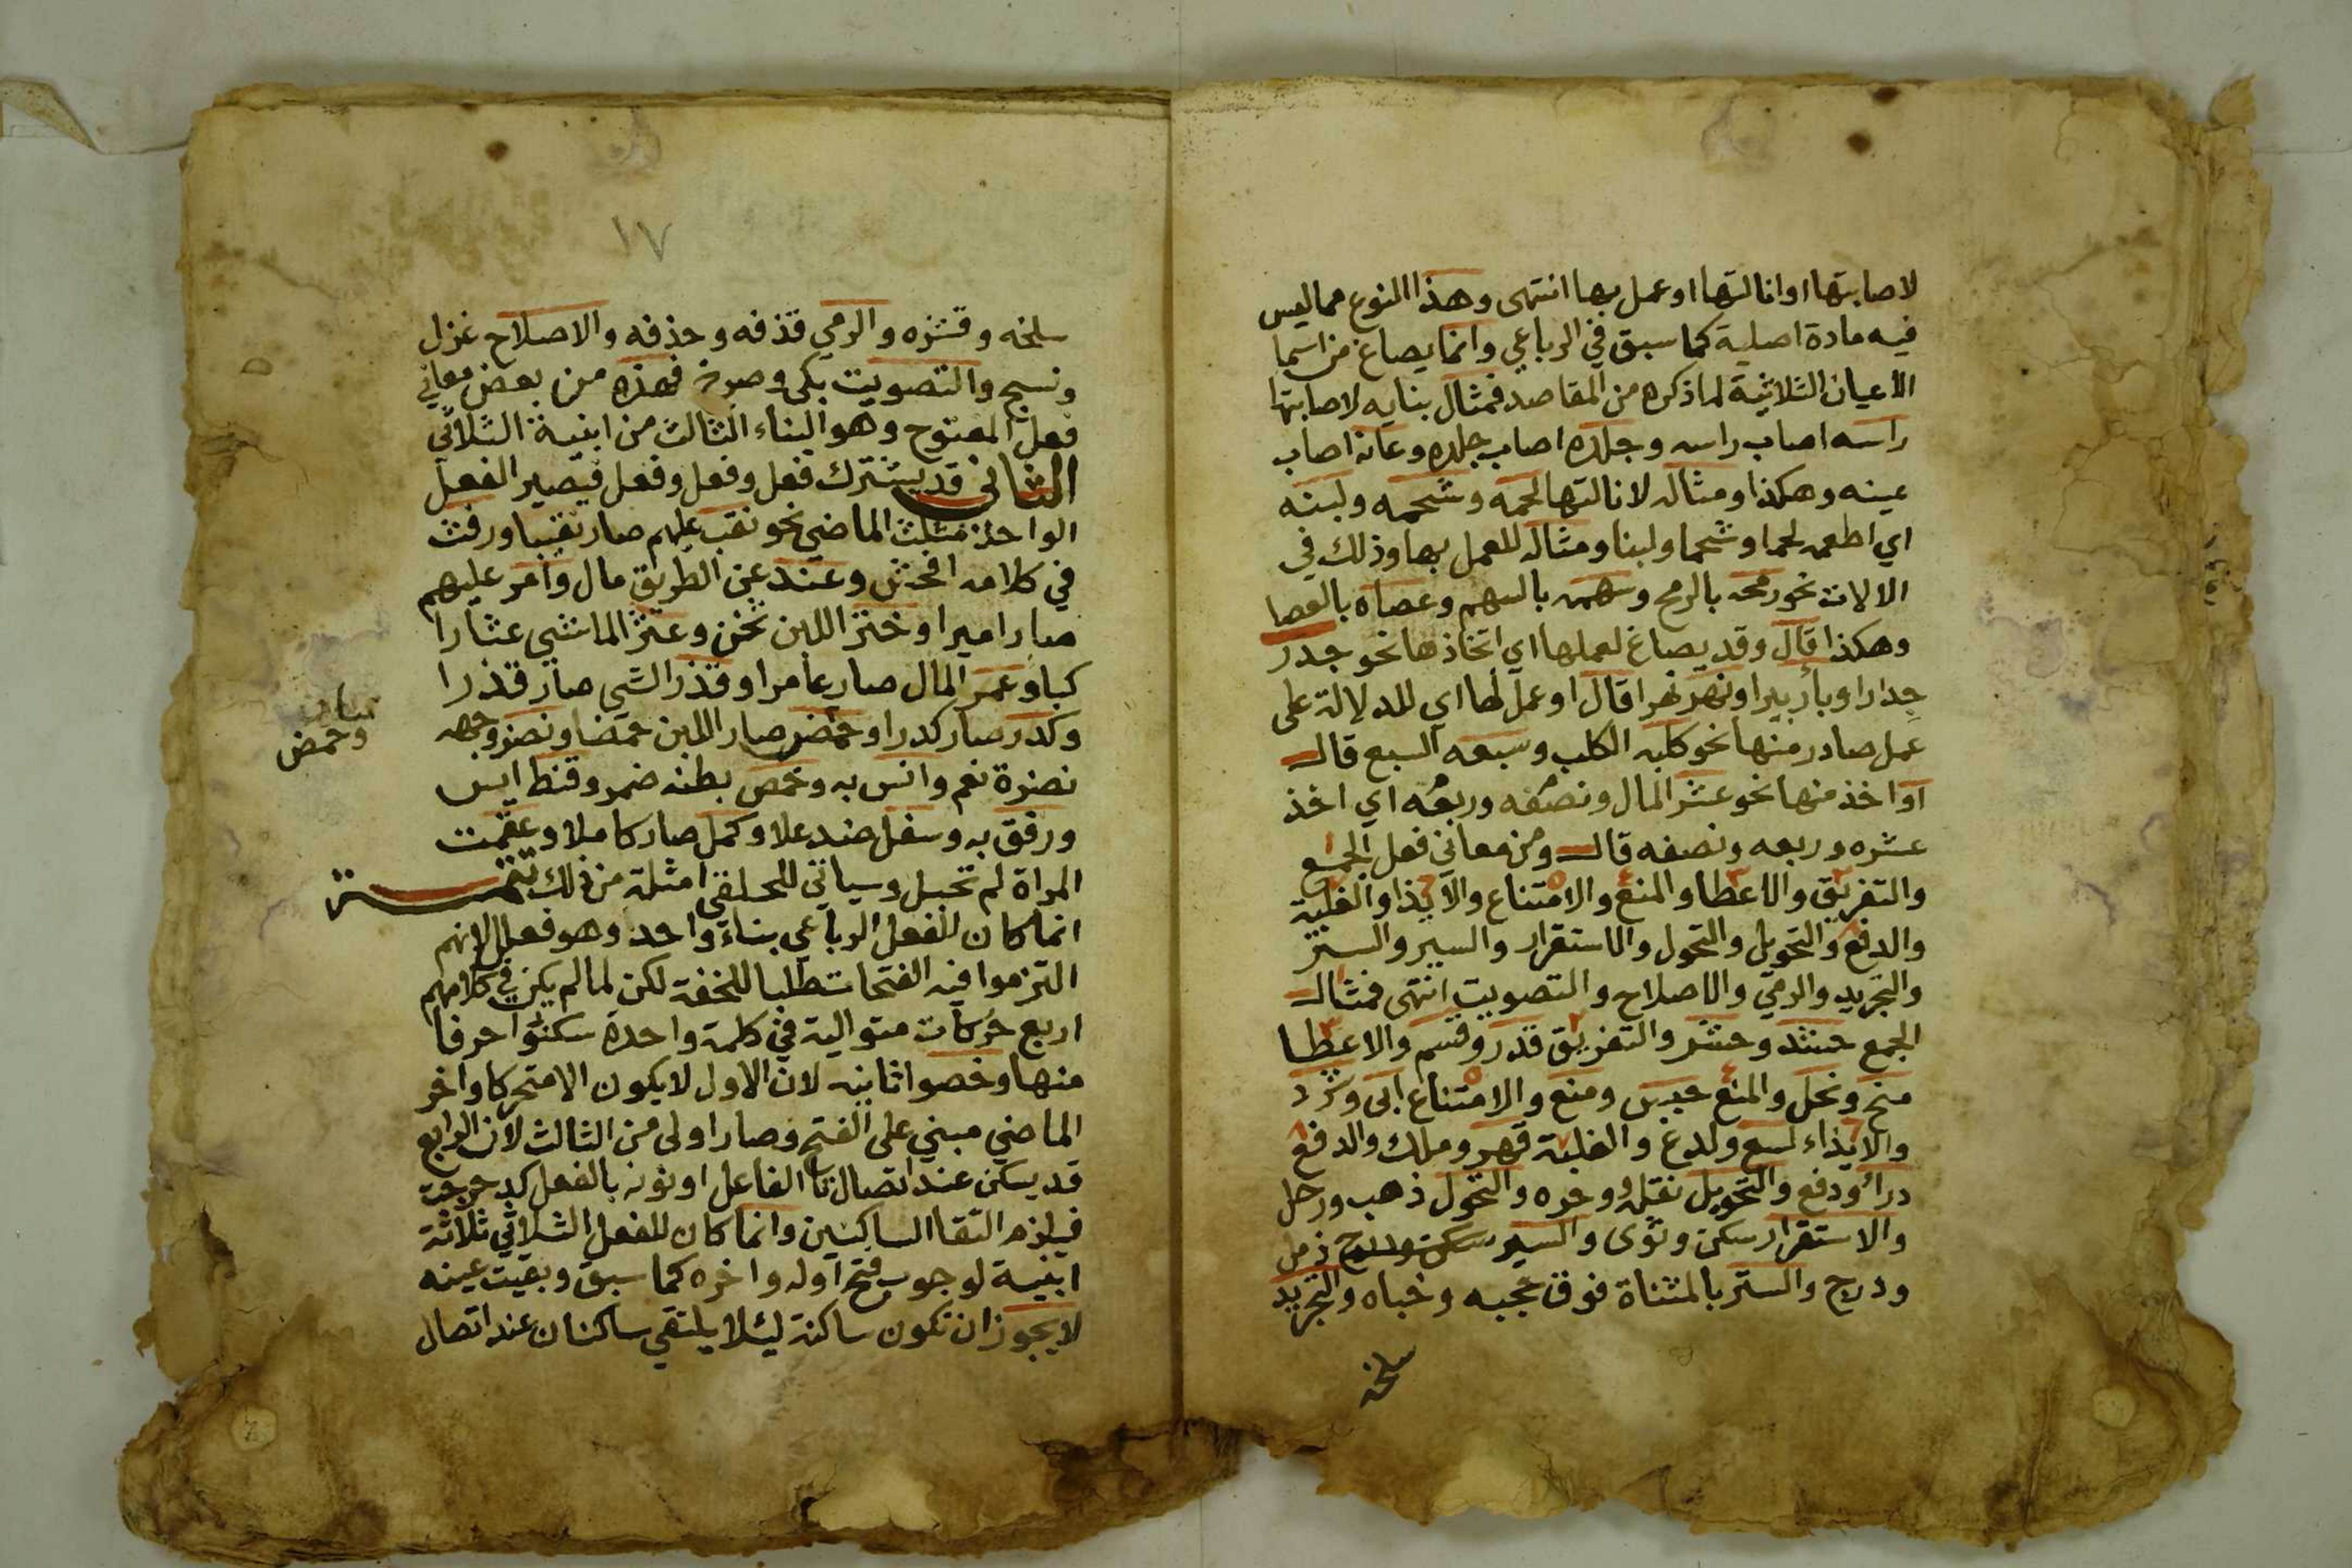 لاصابتها او انالتها او عمل بها انتهى وهذا النوع مما ليس
فيه مادة اصلية كما سبق في الرباعي وانما يصاغ من اسما
الاعيان الثلاثية لما ذكره من المقاصد فمثال بنايه لاصابتها
راسه اصاب راسه وجلده اصاب جلده وعانه اصاب
عينه وهكذا ومثاله لانالتها لحمه وشحمه ولبنه
اي اطعمه لحما وشحما ولبنا ومثاله للعمل بها وذلك في
الالات نحو رمحه بالرمح وسهمه بالسهم وعصاه بالعصا
وهكذا قال وقد يصاغ لعملها اي اتخاذها نحو جدر
جدارا وبأر بيرا ونهر نهرا قال او عمل لها اي للدلالة على
عمل صادر منها نحو كلبه الكلب وسبعه السبع قال
او اخذ منها نحو عشر المال ونصفه وربعه اي اخذ
عشره وربعه ونصفه قال ومن معاني فعل الجمع
والتفريق والاعطا والمنع والامتناع والايذا والغلبة
والدفع والتحويل والتحول والاستقرار والسير والستر
والتجريد والرمي والاصلاح والتصويت انتهى فمثال
الجمع حشد وحشر والتفريق قدر وقسم والاعطا
منح ونحل والمنع حبس ومنع والامتناع ابى وشرد
والايذاء لسع ولدغ والغلبة قهر وملك والدفع
درأ ودفع والتحويل نقله و وحره والتحول ذهب ورحل
والاستقرار سكن وثوى والسير ذمل
ودرج والستر بالمثناة فوق حجبه وخباه والتجريد
سلخه
١٧
سلخه وقشره والرمي قذفه وحذفه والاصلاح غزل
ونسج والتصويت بكى وصرخ فهذه من بعض معاني
فعل المفتوح وهو البناء الثالث من ابنية الثلاثي
الثاني قد يشترك فعل وفعل وفعل فيصير الفعل
الواحد مثلث الماضي نحو نقب عليهم صار نقيبا ورفث
في كلامه افحش وعند عن الطريق مال وأمر عليهم
صار اميرا وخثر اللبن ثخن وعثر الماشي عثارا
كبا وعمر المال صار عامرا وقذر الشي صار قذرا
وكدر صار كدرا وحمض صار اللبن حمضا ونضر وجهه
وحمض
نضرة نعم وانس به وخمص بطنه ضمر وقنط ايس
ورفق به وسفل ضد علا وكمل صار كاملا وعقمت
المراة لم تحبل وسياتي للحلقي امثلة من ذلك تتمـــة
انما كان للفعل الرباعي بناء واحد وهو فعلل لانهم
التزموا فيه الفتحات طلبا للخفة لكن لما لم يكن في كلامهم
اربع حركات متوالية في كلمة واحدة سكنوا حرفا
منها وخصوا ثانيه لان الاول لا يكون الا متحركا واخر
الماضي مبني على الفتح فصار اولى من الثالث لان الرابع
قد يسكن عند اتصال تا الفاعل او نونه بالفعل كدحرجت
فيلزم التقا الساكنين وانما كان للفعل الثلاثي ثلاثة
ابنية لوجوب فتح اوله واخره كما سبق وبقيت عينه
لا يجوز ان تكون ساكنة ليلا يلتقي ساكنان عند اتصال